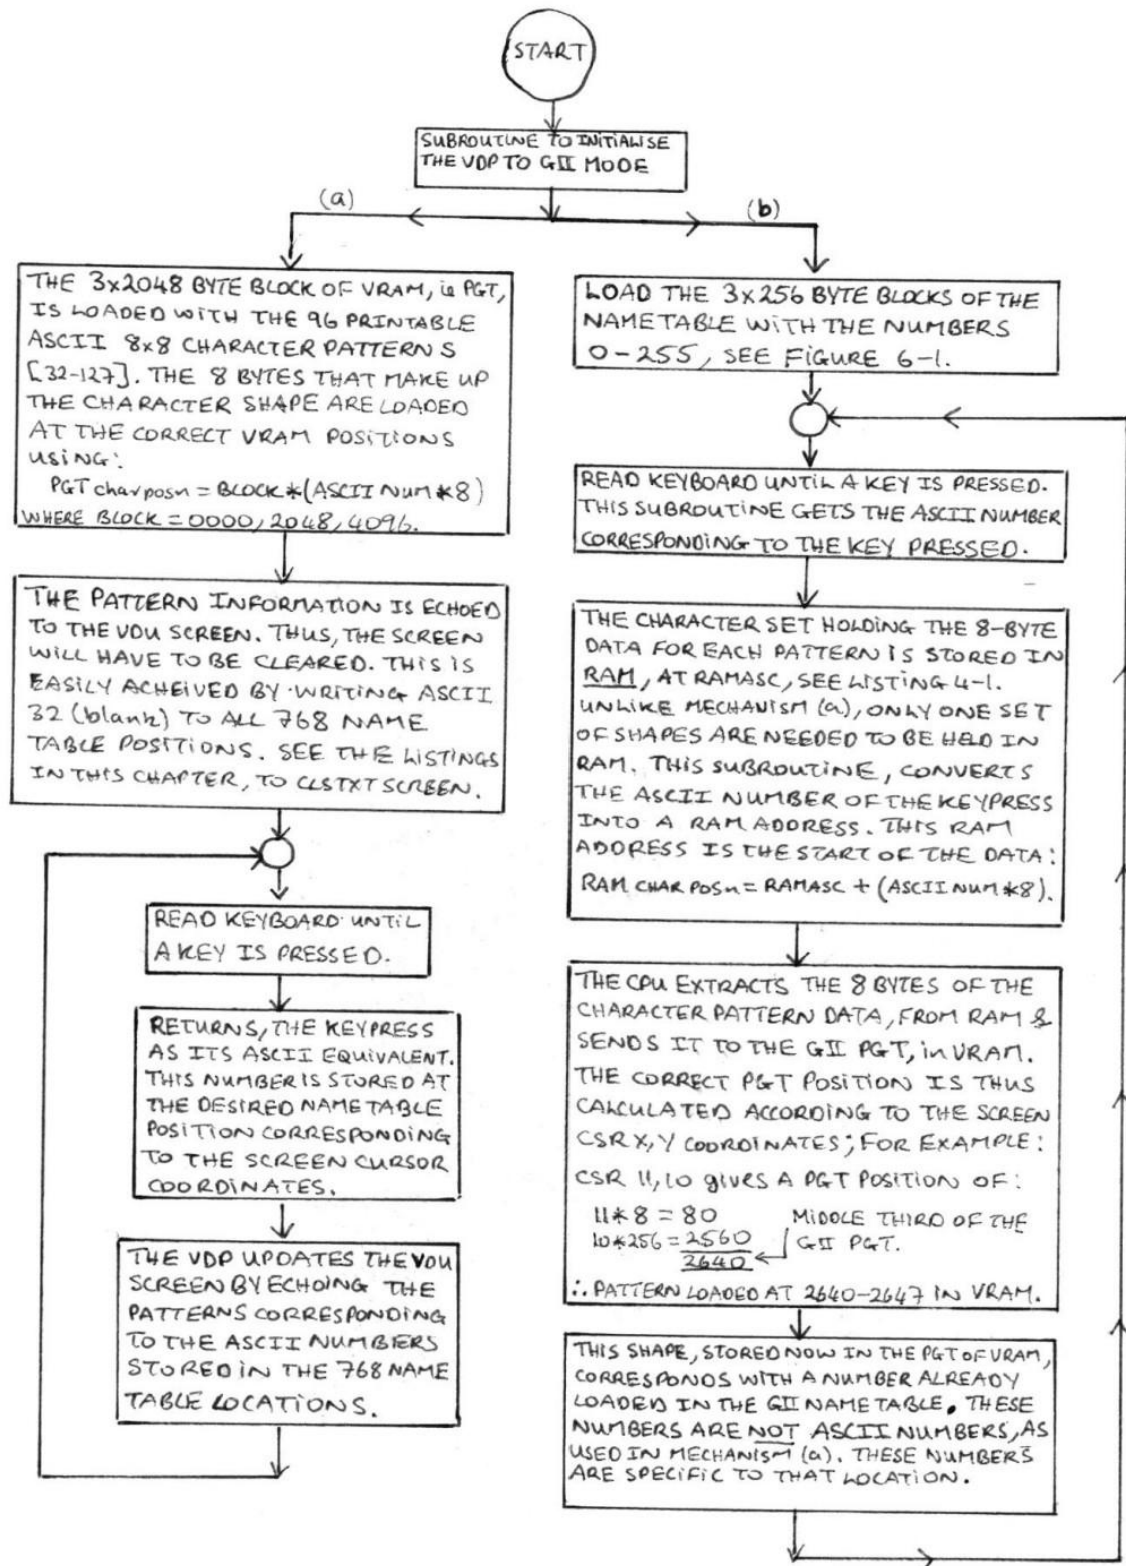 START
SUBROUTINE TO INITIALISE
THE VDP TO GII MODE
(a)
(b)
THE 3x2048 BYTE BLOCK OF VRAM, ie PGT,
IS LOADED WITH THE 96 PRINTABLE
ASCII 8x8 CHARACTER PATTERNS
[32-127]. THE 8 BYTES THAT MAKE UP
THE CHARACTER SHAPE ARE LOADED
AT THE CORRECT VRAM POSITIONS
USING:
PGT charposn = BLOCK*(ASCII NUM*8)
WHERE BLOCK = 0000, 2048, 4096.
THE PATTERN INFORMATION IS ECHOED
TO THE VDU SCREEN. THUS, THE SCREEN
WILL HAVE TO BE CLEARED. THIS IS
EASILY ACHEIVED BY WRITING ASCII
32 (blank) TO ALL 768 NAME
TABLE POSITIONS. SEE THE LISTINGS
IN THIS CHAPTER, TO CLSTXT SCREEN.
READ KEYBOARD UNTIL
A KEY IS PRESSED.
RETURNS, THE KEYPRESS
AS ITS ASCII EQUIVALENT.
THIS NUMBER IS STORED AT
THE DESIRED NAME TABLE
POSITION CORRESPONDING
TO THE SCREEN CURSOR
COORDINATES.
THE VDP UPDATES THE VDU
SCREEN BY ECHOING THE
PATTERNS CORRESPONDING
TO THE ASCII NUMBERS
STORED IN THE 768 NAME
TABLE LOCATIONS.
LOAD THE 3x256 BYTE BLOCKS OF THE
NAMETABLE WITH THE NUMBERS
0-255, SEE FIGURE 6-1.
READ KEYBOARD UNTIL A KEY IS PRESSED.
THIS SUBROUTINE GETS THE ASCII NUMBER
CORRESPONDING TO THE KEY PRESSED.
THE CHARACTER SET HOLDING THE 8-BYTE
DATA FOR EACH PATTERN IS STORED IN
RAM, AT RAMASC, SEE LISTING 4-1.
UNLIKE MECHANISM (a), ONLY ONE SET
OF SHAPES ARE NEEDED TO BE HELD IN
RAM. THIS SUBROUTINE, CONVERTS
THE ASCII NUMBER OF THE KEYPRESS
INTO A RAM ADDRESS. THIS RAM
ADDRESS IS THE START OF THE DATA:
RAM CHAR POSn = RAMASC + (ASCII NUM*8).
THE CPU EXTRACTS THE 8 BYTES OF THE
CHARACTER PATTERN DATA, FROM RAM &
SENDS IT TO THE GII PGT, in VRAM.
THE CORRECT PGT POSITION IS THUS
CALCULATED ACCORDING TO THE SCREEN
CSR X,Y COORDINATES; FOR EXAMPLE:
CSR 11,10 gives A PGT POSITION OF:
11*8 = 80 MIDDLE THIRD OF THE
10*256 = 2560 GII PGT.
2640
∴ PATTERN LOADED AT 2640-2647 IN VRAM.
THIS SHAPE, STORED NOW IN THE PGT OF VRAM,
CORRESPONDS WITH A NUMBER ALREADY
LOADED IN THE GII NAME TABLE. THESE
NUMBERS ARE NOT ASCII NUMBERS, AS
USED IN MECHANISM (a). THESE NUMBERS
ARE SPECIFIC TO THAT LOCATION.